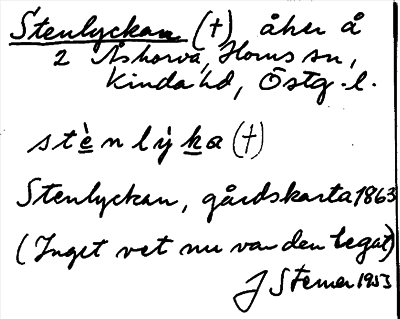 Stenlyckan (†) åker å
2 Åshorva, Horns sn,
Kinda hd, Östg.l.
stènlỳka (†)
Stenlyckan, gårdskarta 1863
(Inget vet nu var den legat)
J Sterner 1953